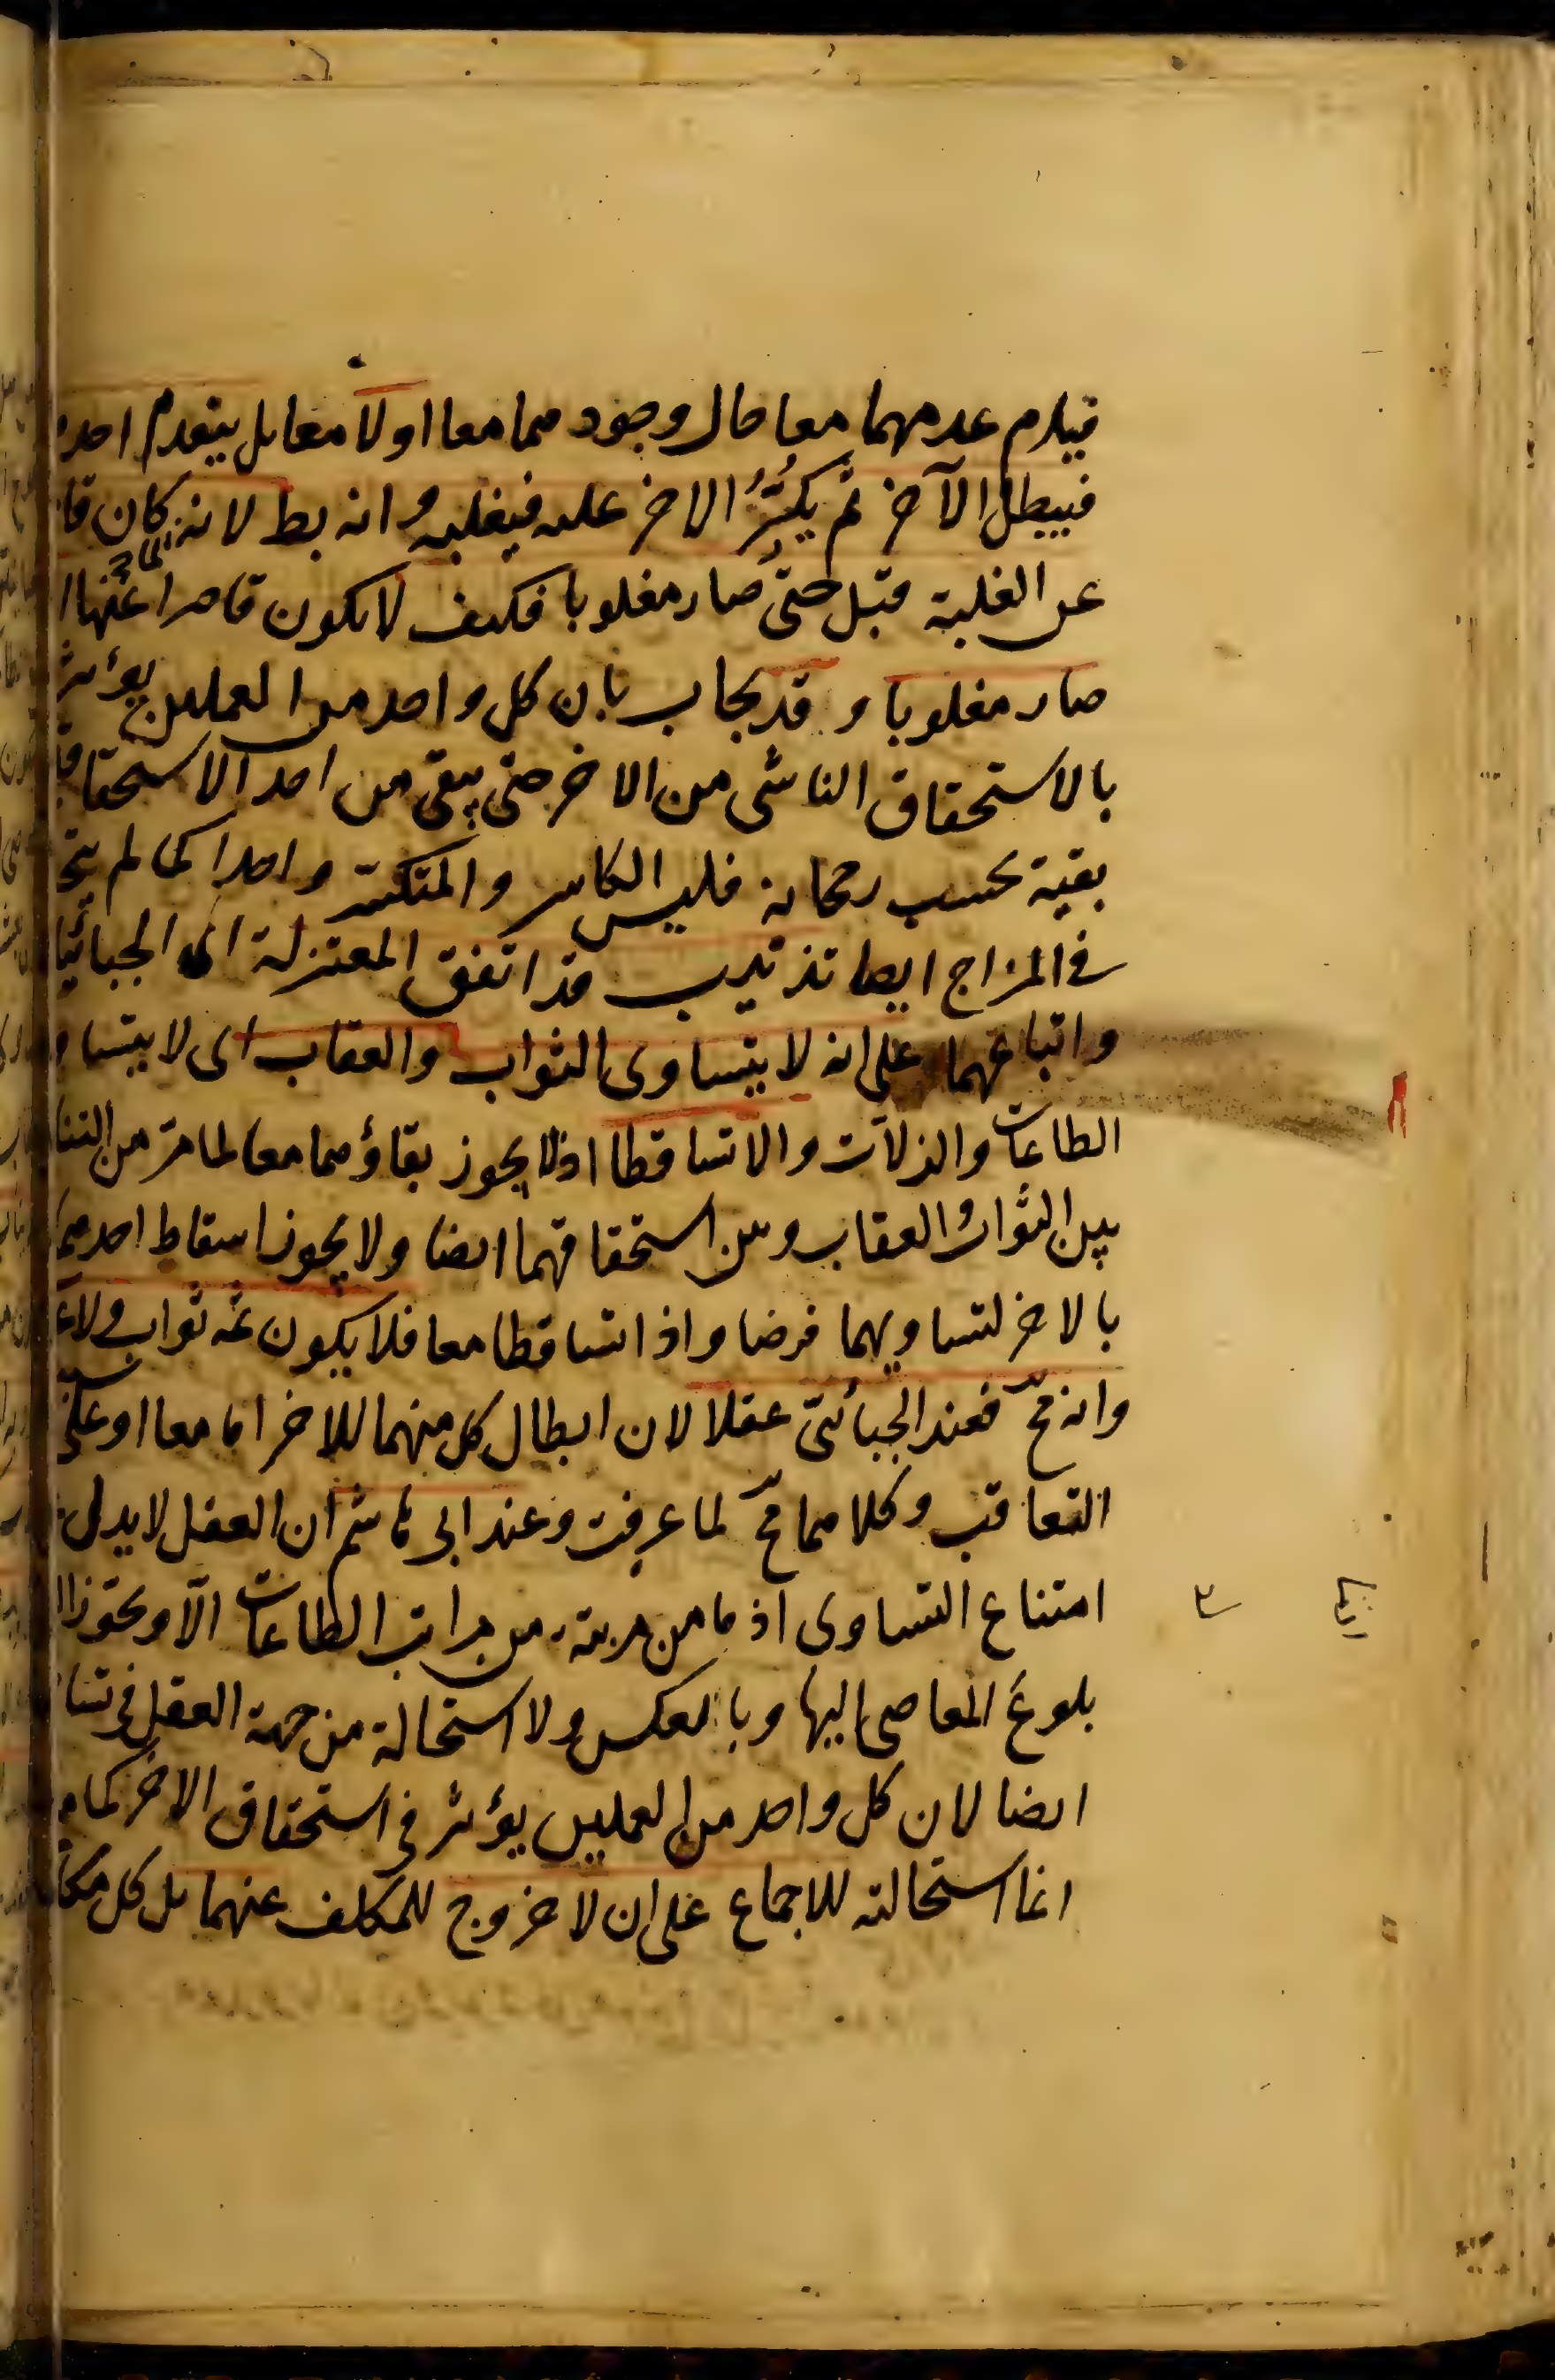 فيلزم عدمهما معا حال وجودهما معا اولا معا بل يتقدم احد
فيبطل الآخر ثم يكثُرُ الاخر عليه فيغلبه وانه بط لانه كان قا
عن الغلبة قبل حتى صار مغلوبا فكيف لا يكون قاصرا عنها ا
صار مغلوبا وقد يجاب بان كل واحد من العملين يؤثر
بالاستحقاق الناشى من الاخر حتى يبقى من احد الاستحقاقا
بقية بحسب رجحانه فليس الكاسر والمنكسر واحدا كما لم يتح
فى المزاج ايضا تذتيب قد اتفق المعتزلة اى الجبائيا
واتباعهما على انه لا يتساوى الثواب والعقاب اى لا يتسا و
الطاعات والزلات والا تساقطا اذ لا يجوز بقاؤهما معا لما مر من التنا
بين الثواب والعقاب وبين استحقاقهما ايضا ولا يجوز اسقاط احدهما
بالاخر لتساويهما فرضا واذا تساقطا معا فلا يكون ثمه ثواب ولا ع
وانه مح فعند الجبائىّ عقلا لان ابطال كل منهما للاخر اما معا او على سبيل
التعاقب وكلاهما مح لما عرفت وعند ابى هاشم ان العقل لا يدل
امتناع التساوى اذ ما من مرتبة من مراتب الطاعات الا ويجوز ا
بلوغ المعاصى اليها وبالعكس ولا استحالة من جهة العقل فى تسا
ايضا لان كل واحد من العملين يؤثر فى استحقاق الاخر كما م
انما استحالته للاجماع على ان لا خروج للمكلف عنهما بل كل مكلف